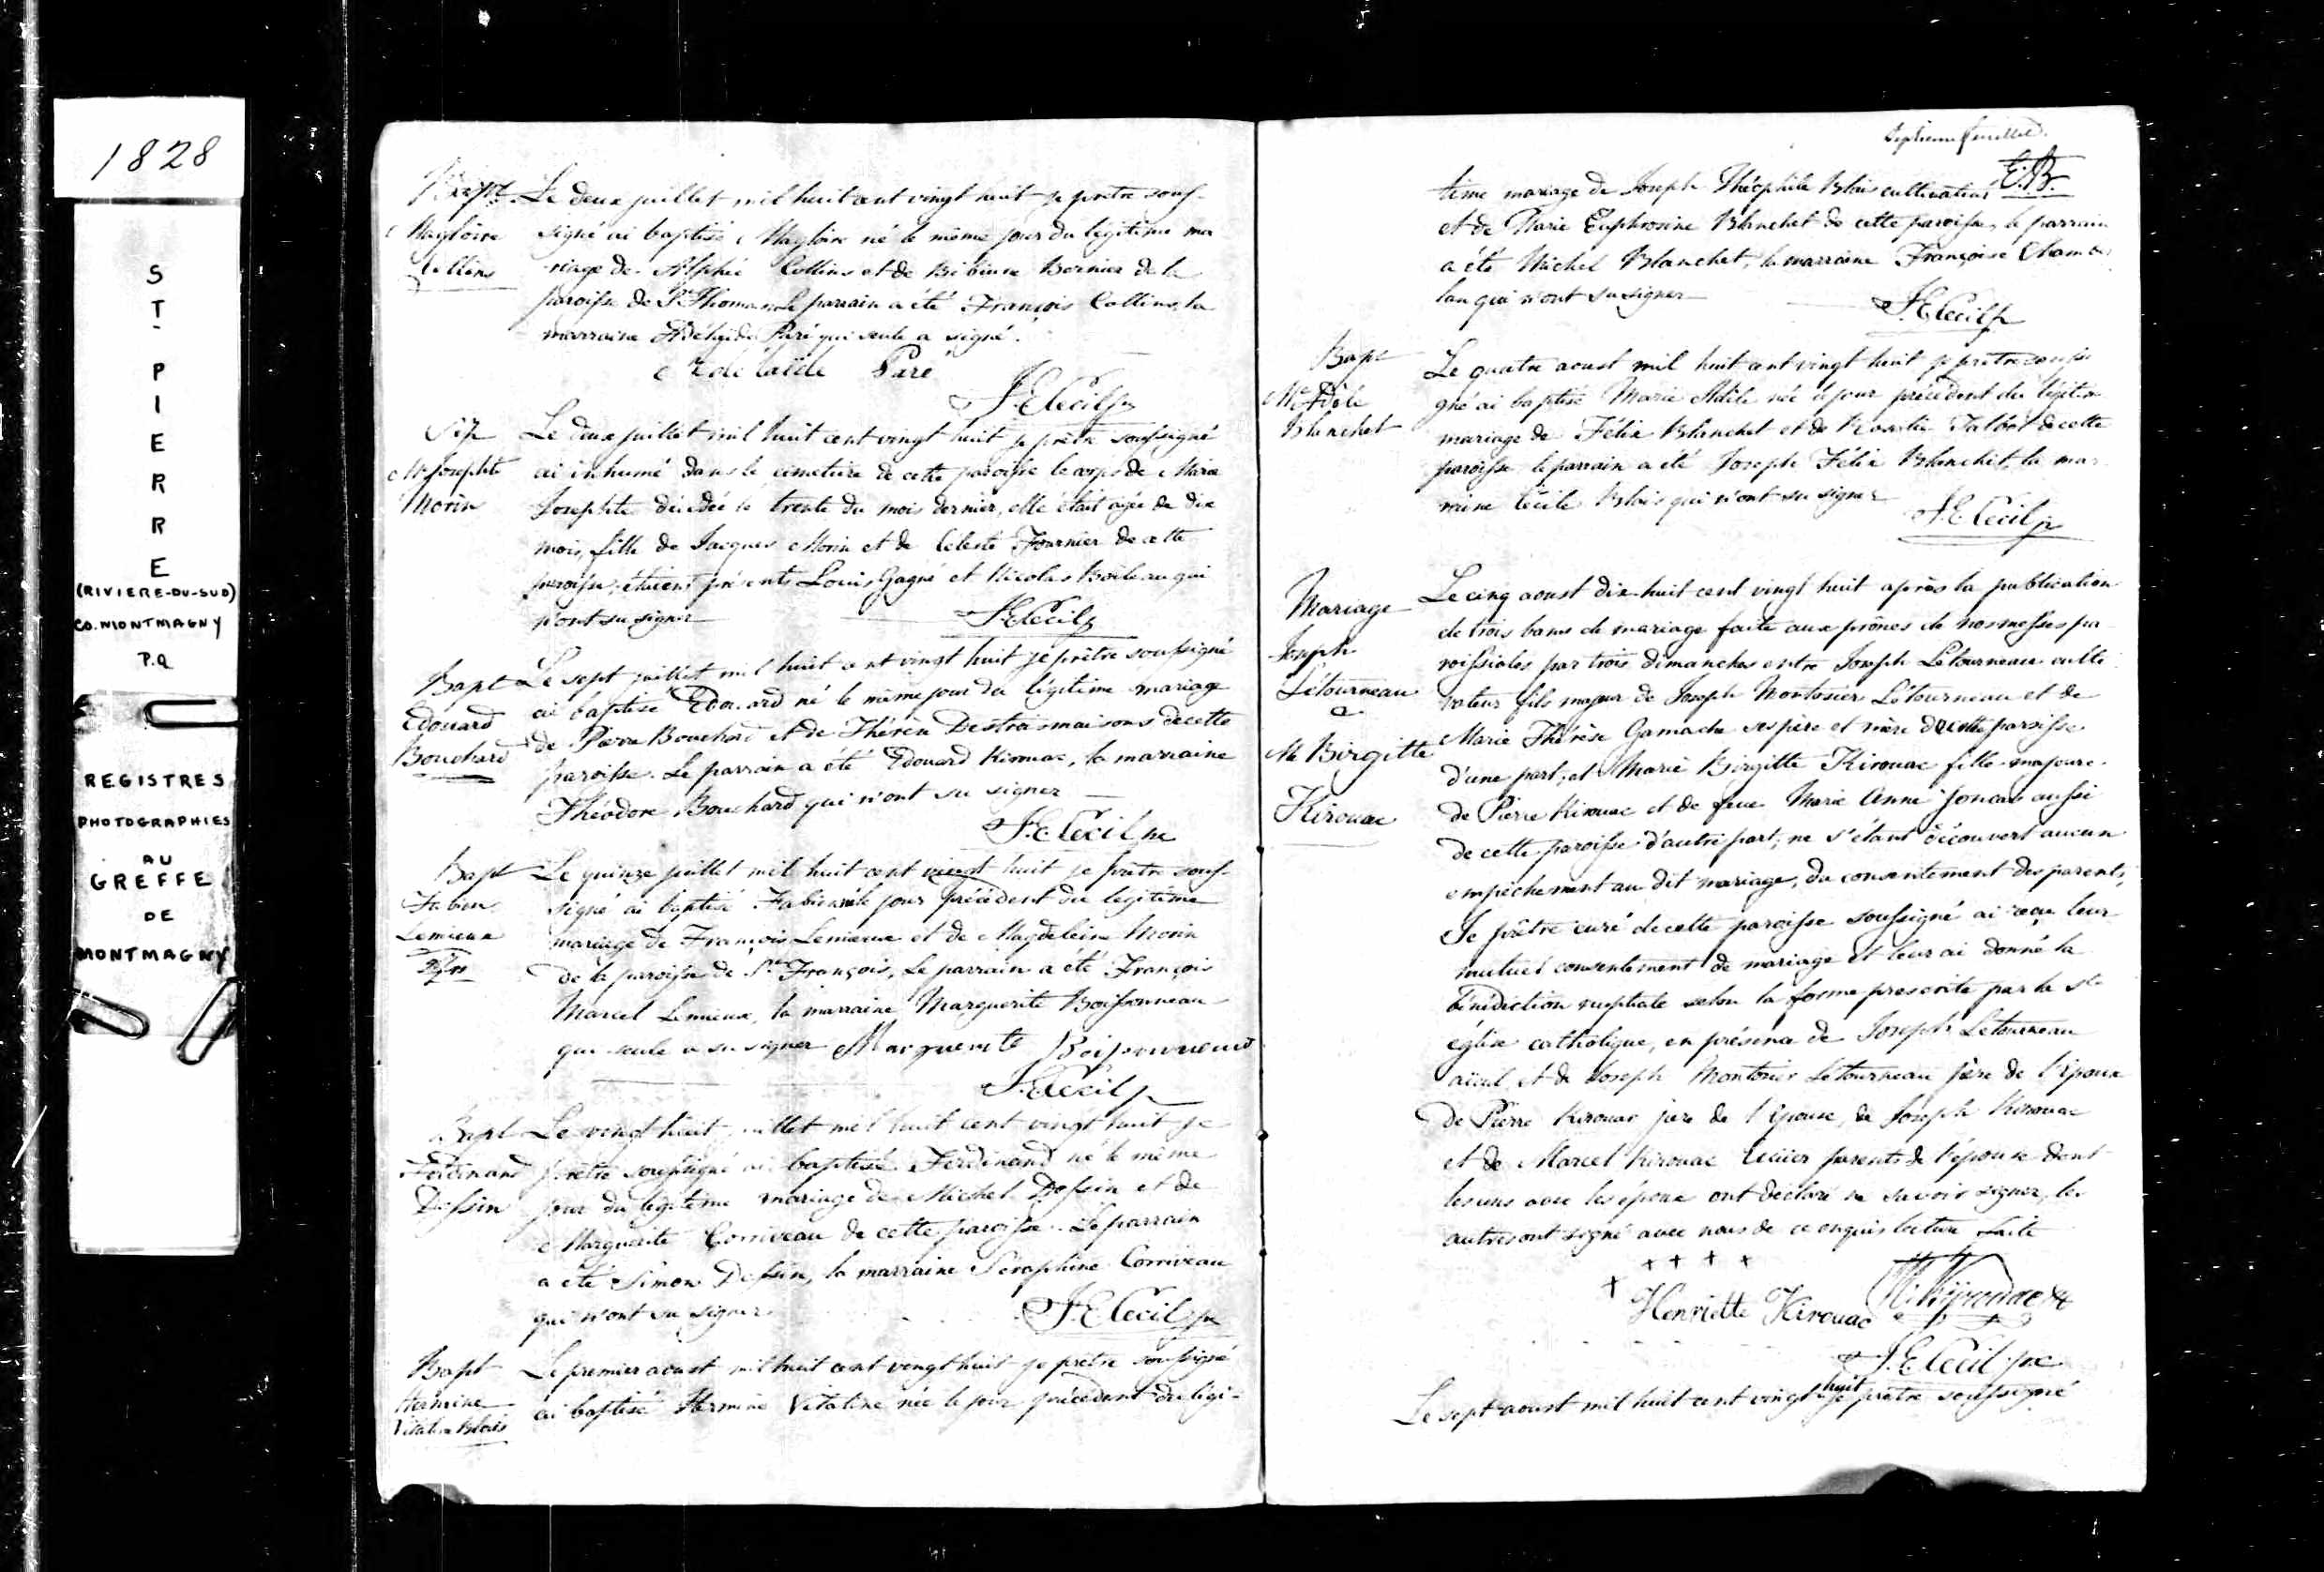 1828
ST
PIERRE
(RIVIERE-DU-SUD)
CO. MONTMAGNY
P.Q
REGISTRES
PHOTOGRAPHIES
AU
GREFFE
DE
MONTMAGNY
Bapt
Magloire
Collins
Le deux juillet mil huit cent vingt huit je prêtre sous-
signé ai baptisé Magloire né le même jour du légitime ma
riage de Alphée Collins et de Bibiane Bernier de la
paroisse de St Thomas. Le parrain a été François Collins, la
marraine Adélaïde Paré qui seule a signé.
Adélaïde Paré
F. E. Cecil p
Sép
Mie Josephte
Morin
Le deux juillet mil huit cent vingt huit je prêtre soussigné
ai inhumé dans le cimetière de cette paroisse le corps de Marie
Josephte décédée le trente du mois dernier, elle était agée de dix
mois, fille de Jacques Morin et de Celeste Fournier de cette
paroisse, étaient présents Louis Gagné et Nicolas Boileau qui
n'ont su signer
F. E. Cecil p
Bapt
Edouard
Bouchard
Le sept juillet mil huit cent vingt huit je prêtre soussigné
ai baptisé Edouard né le même jour du légitime mariage
de Pierre Bouchard et de Thérèse Destroismaisons de cette
paroisse. Le parrain a été Edouard Kirouac, la marraine
Théodore Bouchard qui n'ont su signer
F. E. Cecil ptre
Bapt
Fabien
Lemieux
Le quinze juillet mil huit cent vingt huit je prêtre sous-
signé ai baptisé Fabien né le jour précédent du légitime
mariage de François Lemieux et de Magdeleine Morin
de la paroisse de St François, Le parrain a été François
Marcel Lemieux, la marraine Marguerite Boissonneau
qui seule a su signer Marguerite Boissonneau
F. E. Cecil p
Bapt
Ferdinand
Dessin
Le vingt huit juillet mil huit cent vingt huit je
prêtre soussigné ai baptisé Ferdinand né le même
jour du légitime mariage de Michel Dessin et de
Marguerite Corriveau de cette paroisse. Le parrain
a été Simon Dessin, la marraine Séraphine Corriveau
qui n'ont su signer
F. E. Cecil ptre
Bapt
Hermine
Vitaline Blais
Le premier aoust mil huit cent vingt huit je prêtre soussigné
ai baptisé Hermine Vitaline née le jour précédent du légi-
Septieme feuillet.
E. B.
time mariage de Joseph Théophile Blais cultivateur
et de Marie Euphrosine Blanchet de cette paroisse, le parrain
a été Michel Blanchet, la marraine Françoise Chamber
lan qui n'ont su signer
F. E. Cecil p
Bapt
Mie Adèle
Blanchet
Le quatre aoust mil huit cent vingt huit je prêtre soussi
gné ai baptisé Marie Adèle née le jour précédent du légitime
mariage de Félix Blanchet et de Rosalie Talbot de cette
paroisse le parrain a été Joseph Félix Blanchet, la mar
raine Cécile Blais qui n'ont su signer
F. E. Cecil p
Mariage
Joseph
Létourneau
&
Me Birgitte
Kirouac
Le cinq aoust dix-huit cent vingt huit après la publication
de trois bans de mariage faite aux prônes de nos messes pa
roissiales par trois dimanches entre Joseph Létourneau culti
vateur fils majeur de Joseph Montosier Létourneau et de
Marie Thérèse Gamache ses père et mère de cette paroisse
d'une part, et Marie Birgitte Kirouac fille majeure
de Pierre Kirouac et de feue Marie Anne Joncas aussi
de cette paroisse d'autre part; ne s'étant découvert aucun
empêchement au dit mariage, du consentement des parents,
Je prêtre curé de cette paroisse soussigné ai reçu leur
mutuel consentement de mariage et leur ai donné la
bénédiction nuptiale selon la forme prescrite par la Ste
église catholique, en présence de Joseph Létourneau
aïeul et de Joseph Montosier Létourneau père de l'époux
de Pierre Kirouac père de l'épouse, de Joseph Kirouac
et de Marcel Kirouac parents de l'épouse dont
les uns avec les époux ont déclaré ne savoir signer, les
autres ont signé avec nous de ce enquis lecture faite
+ + + +
+
Henriette Kirouac
F. E. Cecil ptre
Le sept aoust mil huit cent vingt huit je prêtre soussigné